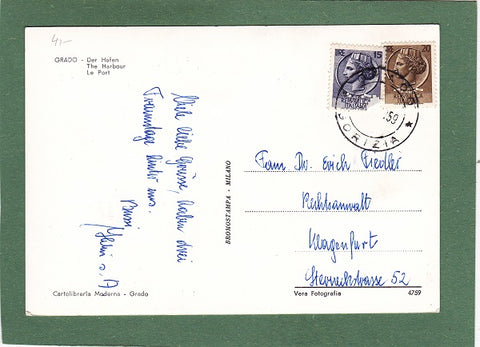 4,-
GRADO - Der Hafen
The Harbour
Le Port
Viele liebe Grüsse, haben drei
Traumtage hinter uns.
Bussi
BROMOSTAMPA - MILANO
15
20
.59
GORIZIA
Fam. Dr. Erich Fiedler
Rechtsanwalt
Klagenfurt
Sterneckstrasse 52
Cartolibreria Moderna - Grado
Vera Fotografia
4759